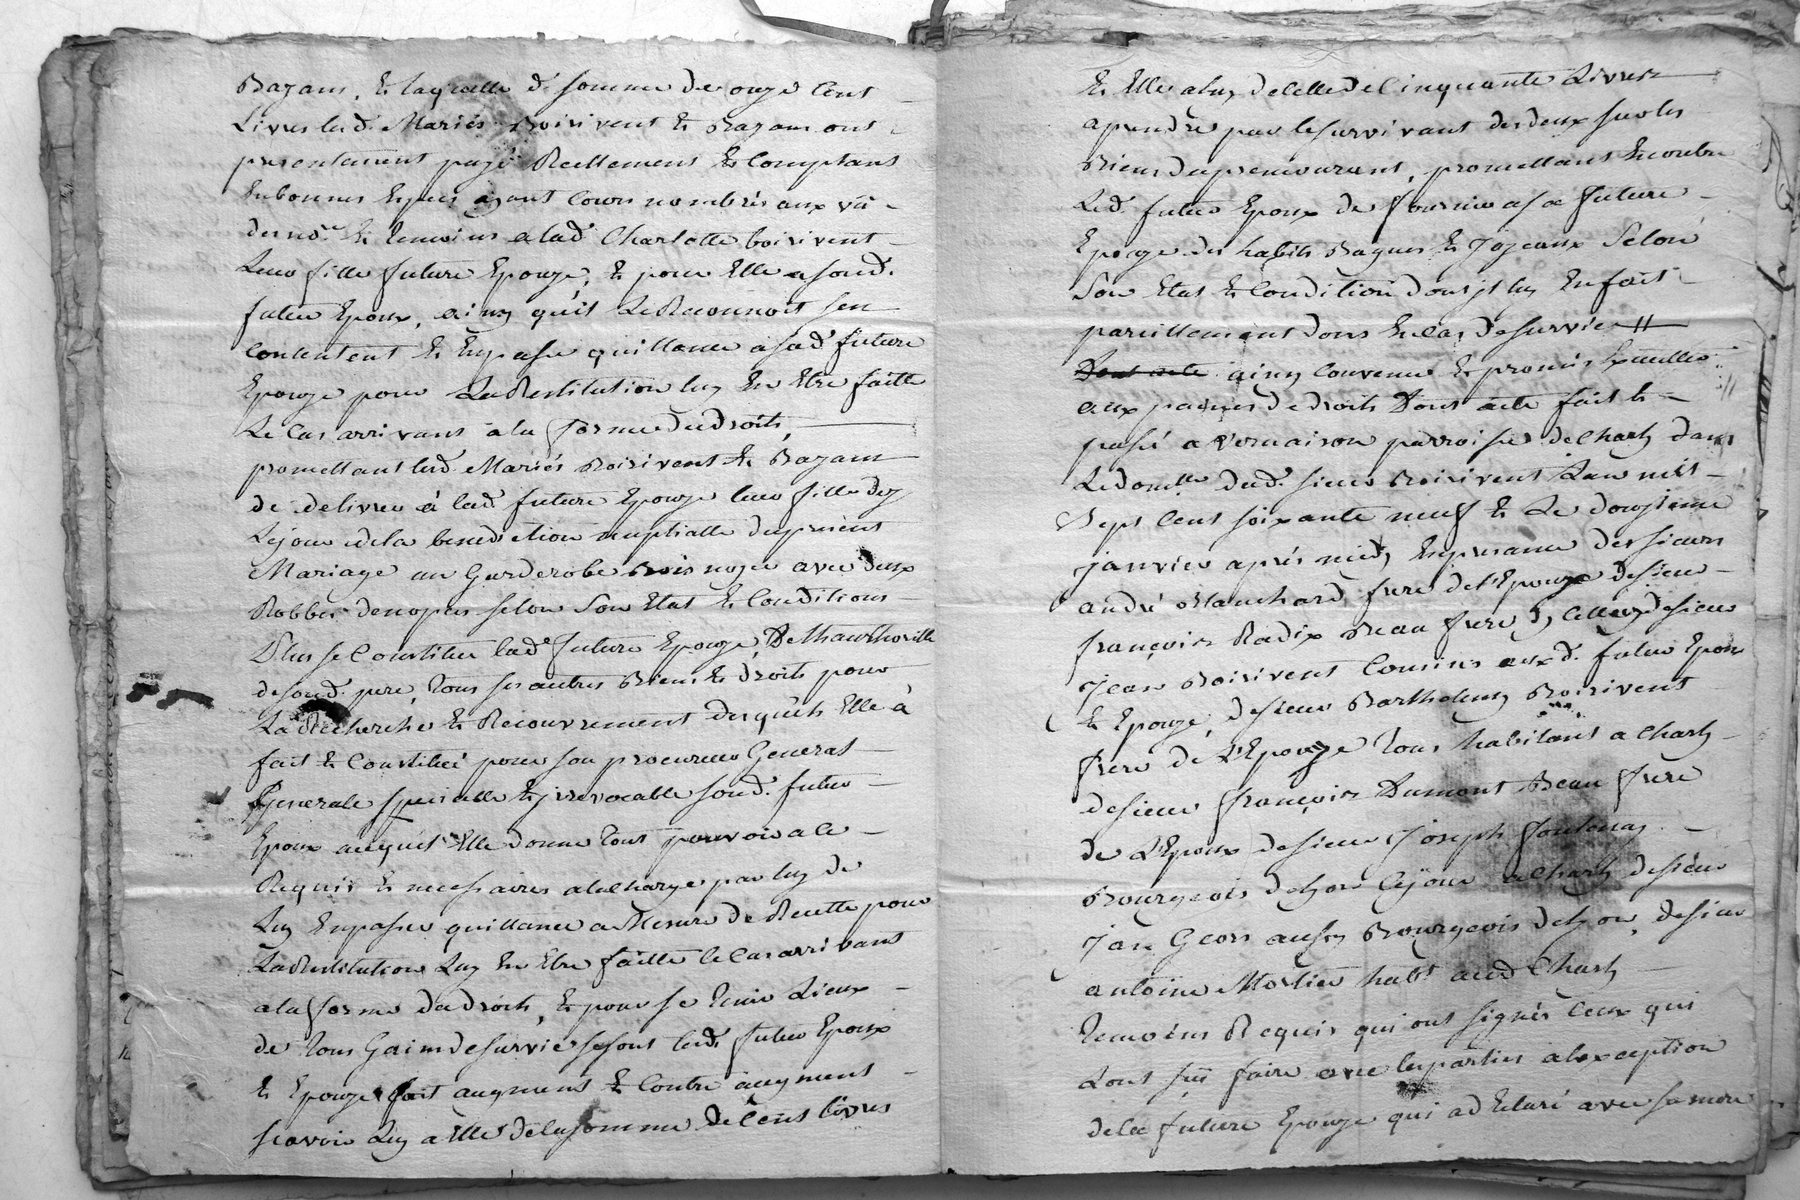 Bazam, Et laquelle d. somme de onze Cent
Livres lesd. Mariés Boisivent Et Bazam ont
presentement payé Reellement Et Comptant
En bonnes Espeses ayant Cours nombrés aux vü
des no.re Et temoins a lad. Charlotte boisivent
Leur fille future Epouze, Et pour Elle a sond.
futur Epoux, ainsy qu'il Le Reconnoit sen
Contentent Et En passe quittance a sad. future
Epouze pour La Restitution luy En Etre faitte
Le Cas arrivant a la forme du droits,
promettant lesd. Mariés Boisivent Et Bazam
de delivrer à lad. future Epouze leur fille dez
Le jour de la benediction nuptialle du present
Mariage un Garderobe Bois noyer avec deux
Robbes de nopces selon Son Etat Et Conditions
Plus se Constitue lad.e future Epouze, De
de sond. pere, Tous ses autres Biens Et droits pour
La Recherche Et Recouvrement desquels Elle à
fait Et Constitué pour son procureur General
Generale specialle Et jrrevocable sond. futur
Epoux auquel Elle donne tout pouvoir a ce
Requis Et necessaires a la charge par luy de
Luy En passer quittance a Mesure de Recette pour
La Restitution Luy En Etre faitte le Cas arrivant
a la forme du droits, Et pour se tenir Lieux
de tous Gains de survie se sont lesd. futur Epoux
Et Epouze fait augment Et Contre augment
scavoir Luy a Elle de la somme de Cent livres
Et Elle a luy de Celle de Cinquante Livres
a prendre par le survivant des deux sur les
Biens du premourant, promettant En outre
Led. futur Epoux de fournir a sa future
Epouze des habits Bagues Et Joyeaux Selon
Son Etat Et Condition dont jl luy En fait
pareillement dons En Cas de survie
Dont acte ainsy Convenu Et promis
aux paines de droits Dont acte fait Et
passé a Vernaison parroisse de Charly dans
Le domille dud. sieur Boisivent L'an mil
Sept Cent soixante neuf Et Le douzieme
janvier après midy En presance des sieurs
andré Blanchard frere de l'Epouze de sieur
françois Radix Beau frere de sieur
Jean Boisivent Cousins auxd. futur Epoux
Et Epouze, de sieur Barthelemy Boisivent
frere de L'Epouze Tous habitant a Charly
de sieur françois Dumont Beau frere
de L'Epoux de sieur Joseph Fontenay
Bourgeois de Lyon a Charly de sieur
Jan Geors aussy Bourgeois de Lyon, de sieur
antoine Mortier habt aud Charly
temoins Requis qui ont signés Ceux qui
L'ont sçü faire avec les parties a l'exception
de la future Epouze qui a declaré avec sa mere